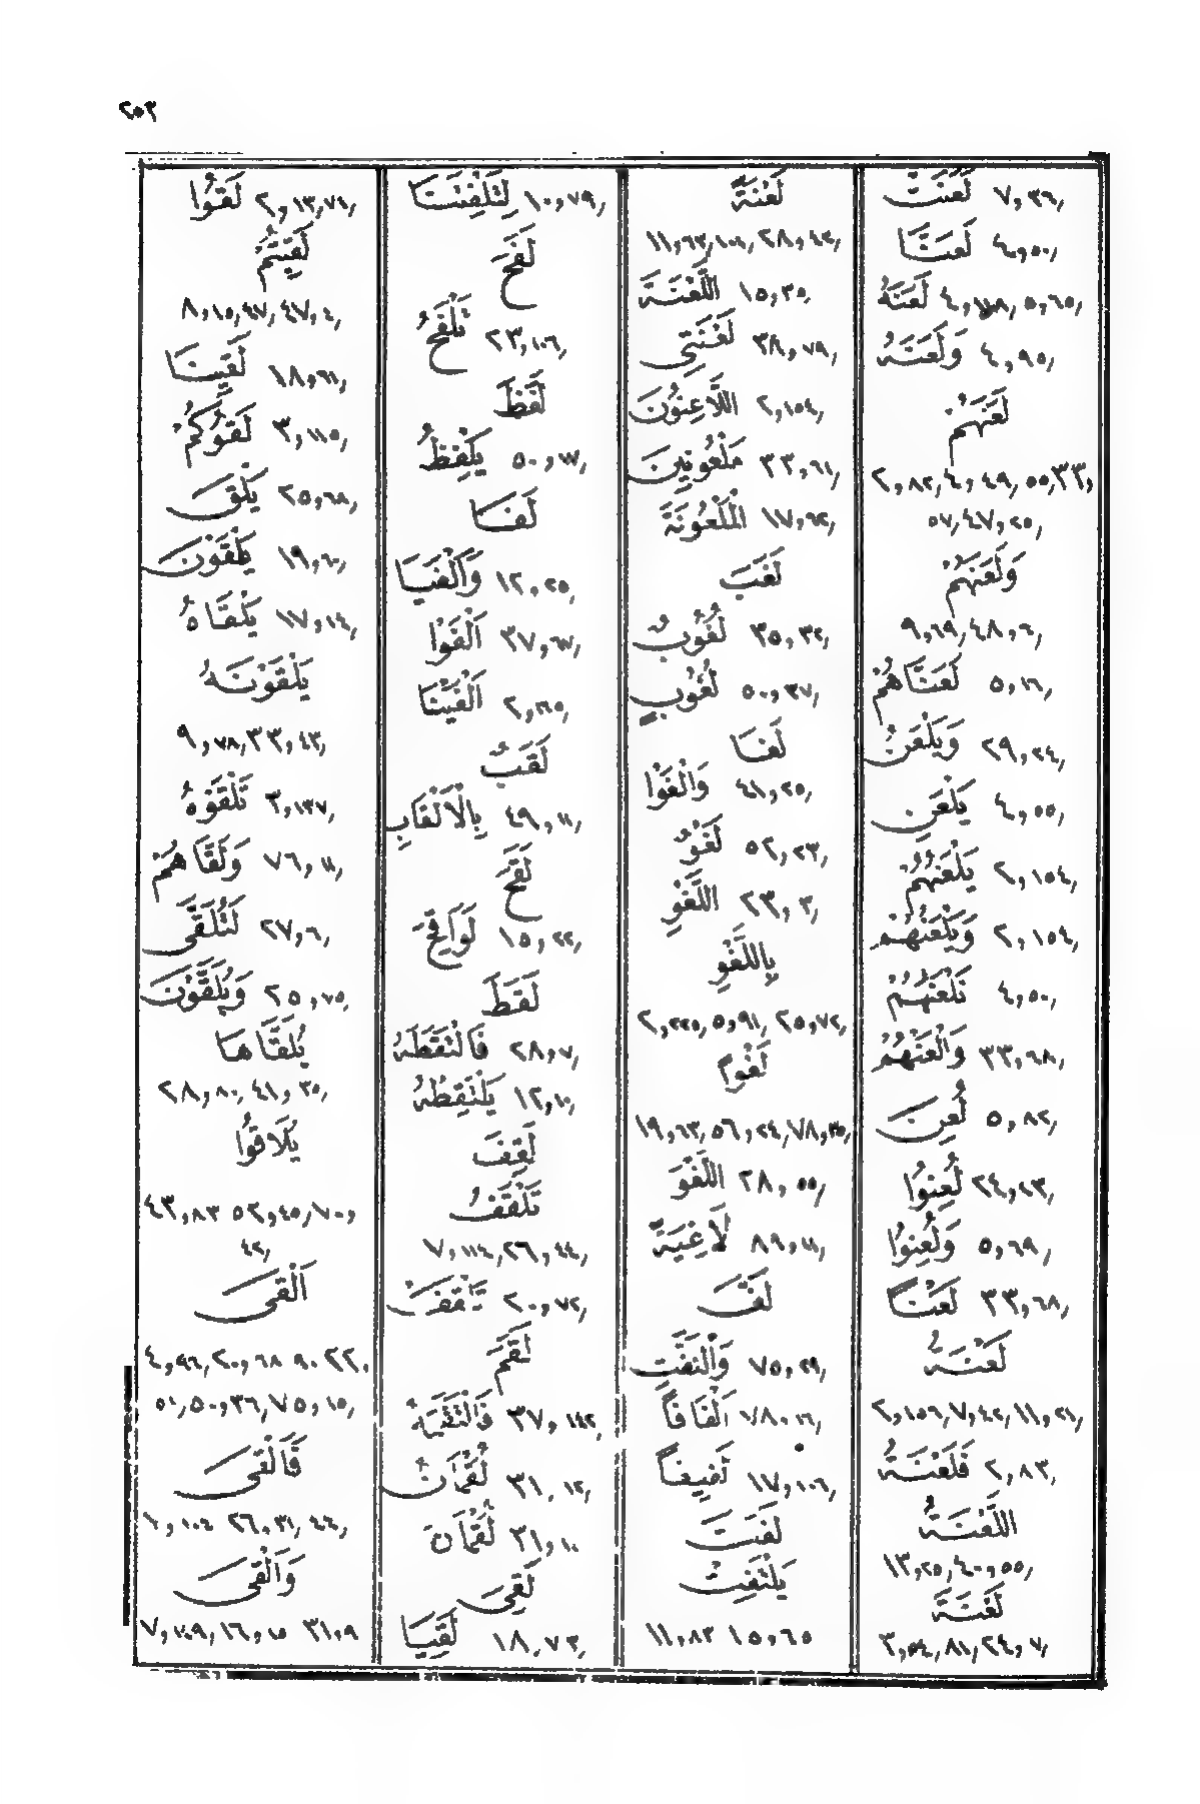 ٢٥٣
لَعَنَتْ ٧,٣٦,
لَعَنَّا ٤,٥٠,
لَعَنَهُ ٤,١١٨,٥,٦٥,
وَلَعَنَهُ ٤,٩٥,
لَعَنَهُمْ
٢,٨٢,٤,٤٩,٥٥,٣٣,
٥٧,٤٧,٢٥,
وَلَعَنَهُمْ
٩,٦٩,٤٨,٦,
لَعَنَّاهُمْ ٥,١٦,
وَيَلْعَنُ ٢٩,٢٤,
يَلْعَنِ ٤,٥٥,
يَلْعَنُهُمُ ٢,١٥٤,
وَيَلْعَنُهُمْ ٢,١٥٤,
نَلْعَنَهُمْ ٤,٥٠,
وَالْعَنْهُمْ ٣٣,٦٨,
لُعِنَ ٥,٨٢,
لُعِنُوا ٢٤,٢٣,
وَلُعِنُوا ٥,٦٩,
لَعْنًا ٣٣,٦٨,
لَعْنَةُ
٢,١٥٦,٧,٤٢,١١,٢١,
فَلَعْنَةُ ٢,٨٣,
اللَّعْنَةُ
١٣,٢٥,٤٠,٥٥,
لَعْنَةَ
٣,٥٤,٨١,٢٤,٧,
لَعْنَةً
١١,٦٣,١٠١,٢٨,٤٢,
اللَّعْنَةَ ١٥,٣٥,
لَعْنَتِى ٣٨,٧٩,
اللَّاعِنُونَ ٢,١٥٤,
مَلْعُونِينَ ٣٣,٦١,
الْمَلْعُونَةَ ١٧,٦٢,
لَغَبَ
لُغُوبٌ ٣٥,٣٢,
لُغُوبٍ ٥٠,٣٧,
لَغَا
وَالْغَوْا ٤١,٢٥,
لَغْوٌ ٥٢,٢٣,
اللَّغْوِ ٢٣,٣,
بِاللَّغْوِ
٢,٢٢٥,٥,٩١,٢٥,٧٢,
لَغْوًا
١٩,٦٣,٥٦,٢٤,٧٨,٣٥,
اللَّغْوَ ٢٨,٥٥,
لَاغِيَةً ٨٩,١١,
لَفَّ
وَالْتَفَّتِ ٧٥,٢٩,
اَلْفَافًا ٧٨,١٦,
لَفِيفًا ١٧,١٠٦,
لَفَتَ
يَلْتَفِتْ
١١,٨٣ ١٥,٦٥
لِتَلْفِتَنَا ١٠,٧٩,
لَفَحَ
تَلْفَحُ ٢٣,١٠٦,
لَفَظَ
يَلْفِظُ ٥٠,١٧,
لَفَا
وَأَلْفَيَا ١٢,٢٥,
اَلْفَوْا ٣٧,٦٧,
اَلْفَيْنَا ٢,١٦٥,
لَقَبٌ
بِالْاَلْقَابِ ٤٩,١١,
لَقَحَ
لَوَاقِحَ ١٥,٢٢,
لَقَطَ
فَالْتَقَطَهُ ٢٨,٧,
يَلْتَقِطْهُ ١٢,١٠,
لَقِفَ
تَلْقَفُ
٧,١١٤,٢٦,٤٤,
تَلْقَفْ ٢٠,٧٢,
لَقَمَ
فَالْتَقَمَهُ ٣٧,١٤٢,
لُقْمَانُ ٣١,١٢,
لُقْمَانَ ٣١,١٠
لَقِىَ
لَقِيَا ١٨,٧٣,
لَقُوا ٢,١٣,٧١,
لَقِيتُمْ
٨,١٥,٤٧,٤٧,٤,
لَقِينَا ١٨,٦١,
لَقُوكُمْ ٣,١١٥,
يَلْقَ ٢٥,٦٨,
يَلْقَوْنَ ١٩,٦٠,
يَلْقَاهُ ١٧,١٤,
يَلْقَوْنَهُ
٩,٧٨,٣٣,٤٣,
تَلْقَوْهُ ٣,١٣٧,
وَلَقَّاهُمْ ٧٦,١١,
لَتُلَقَّى ٢٧,٦,
وَيُلَقَّوْنَ ٢٥,٧٥,
يُلَقَّاهَا
٢٨,٨٠,٤١,٣٥,
يُلَاقُوا
٤٣,٨٣ ٥٢,٤٥,٧٠,
٤٢,
اَلْقَى
٤,٩٤,٢٠,٦٨ ٩٠ ٢٢,
٥١,٥٠,٣٦,٧٥,١٥,
فَاَلْقَى
٧,١٠٤ ٢٦,٣١,٤٤,
وَاَلْقَى
٧,١٤٩,١٦,١٥ ٣١,٩